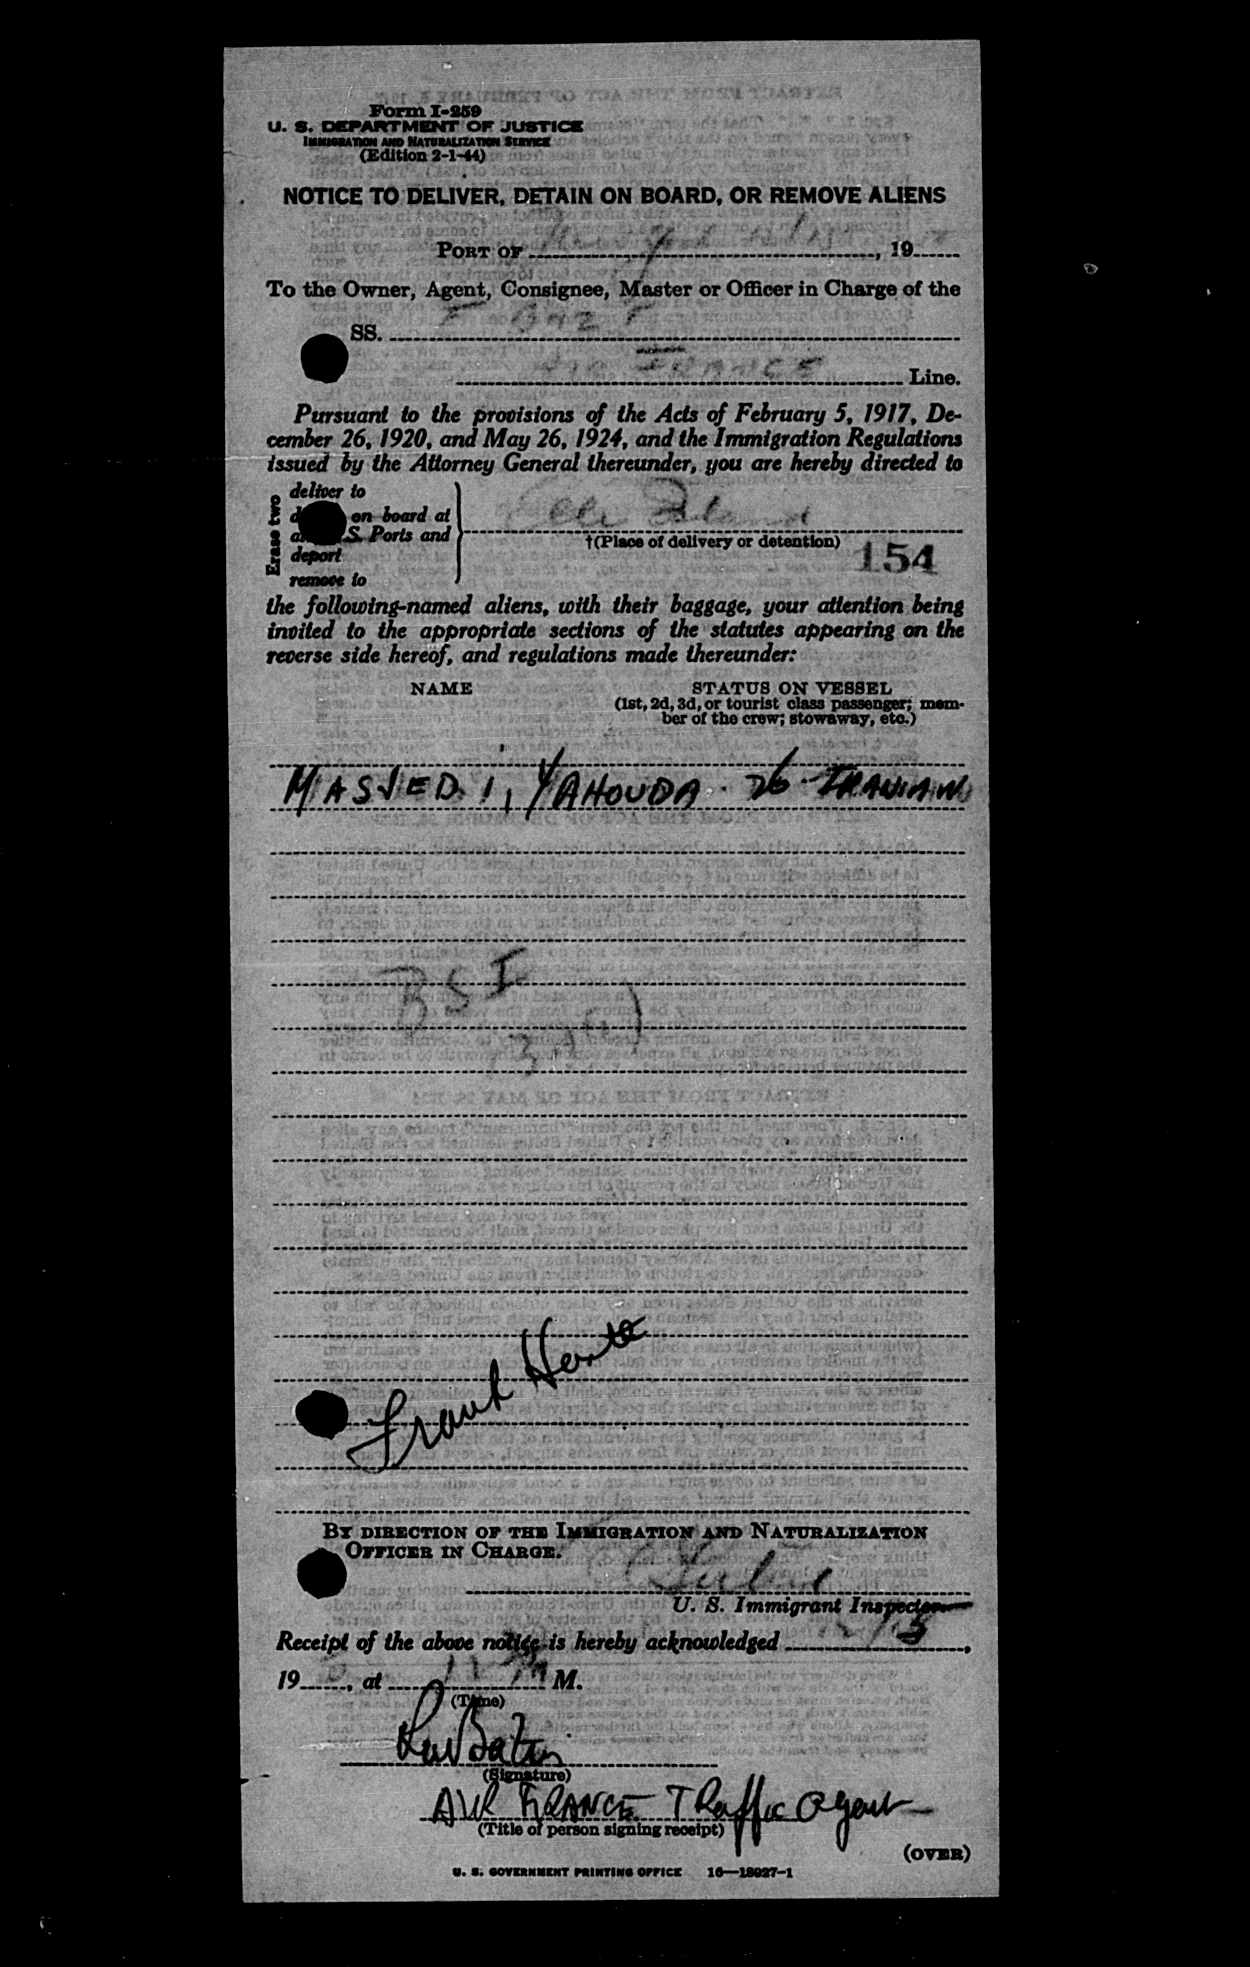 Form I-259
U. S. DEPARTMENT OF JUSTICE
IMMIGRATION AND NATURALIZATION SERVICE
(Edition 2-1-44)
NOTICE TO DELIVER, DETAIN ON BOARD, OR REMOVE ALIENS
PORT OF , 19
To the Owner, Agent, Consignee, Master or Officer in Charge of the
SS.
AIR FRANCE Line.
Pursuant to the provisions of the Acts of February 5, 1917, De-
cember 26, 1920, and May 26, 1924, and the Immigration Regulations
issued by the Attorney General thereunder, you are hereby directed to
Erase two
deliver to
on board at
S. Ports and
deport
remove to
Island
†(Place of delivery or detention)
154
the following-named aliens, with their baggage, your attention being
invited to the appropriate sections of the statutes appearing on the
reverse side hereof, and regulations made thereunder:
NAME STATUS ON VESSEL
(1st, 2d, 3d, or tourist class passenger; mem-
ber of the crew; stowaway, etc.)
MASJEDI, YAHOUDA. 26 IRANIAN
BSI
Frank
BY DIRECTION OF THE IMMIGRATION AND NATURALIZATION
OFFICER IN CHARGE.
U. S. Immigrant Inspector
Receipt of the above notice is hereby acknowledged ,
19 , at M.
(Time)
(Signature)
AIR FRANCE Traffic Agent
(Title of person signing receipt)
(OVER)
U. S. GOVERNMENT PRINTING OFFICE 16—18927-1